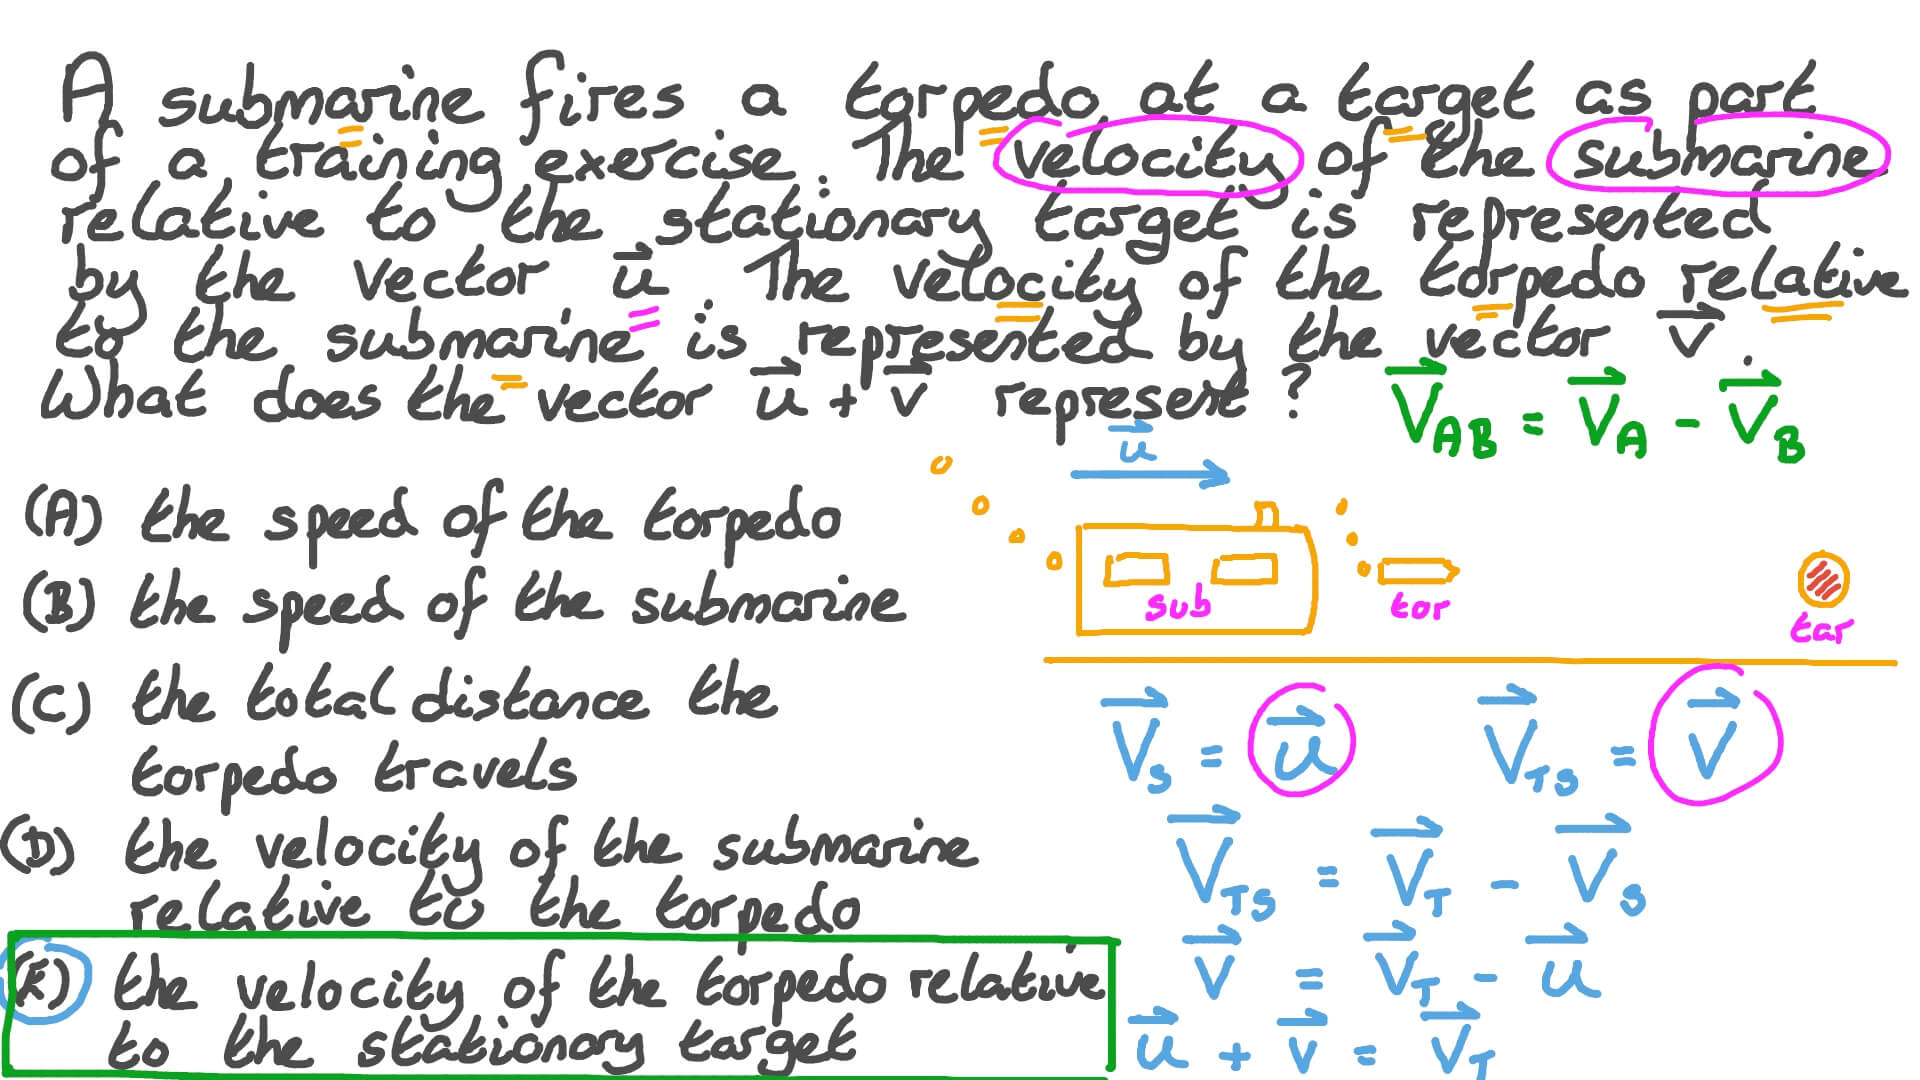 A submarine fires a torpedo at a target as part
of a training exercise. The velocity of the submarine
relative to the stationary target is represented
by the vector u⃗. The velocity of the torpedo relative
to the submarine is represented by the vector v⃗.
What does the vector u⃗ + v⃗ represent?
V⃗_AB = V⃗_A - V⃗_B
u⃗
(A) the speed of the torpedo
(B) the speed of the submarine
(C) the total distance the
torpedo travels
(D) the velocity of the submarine
relative to the torpedo
(E) the velocity of the torpedo relative
to the stationary target
sub
tor
tar
V⃗_S = u⃗
V⃗_TS = V⃗
V⃗_TS = V⃗_T - V⃗_S
V⃗ = V⃗_T - u⃗
u⃗ + v⃗ = V⃗_T